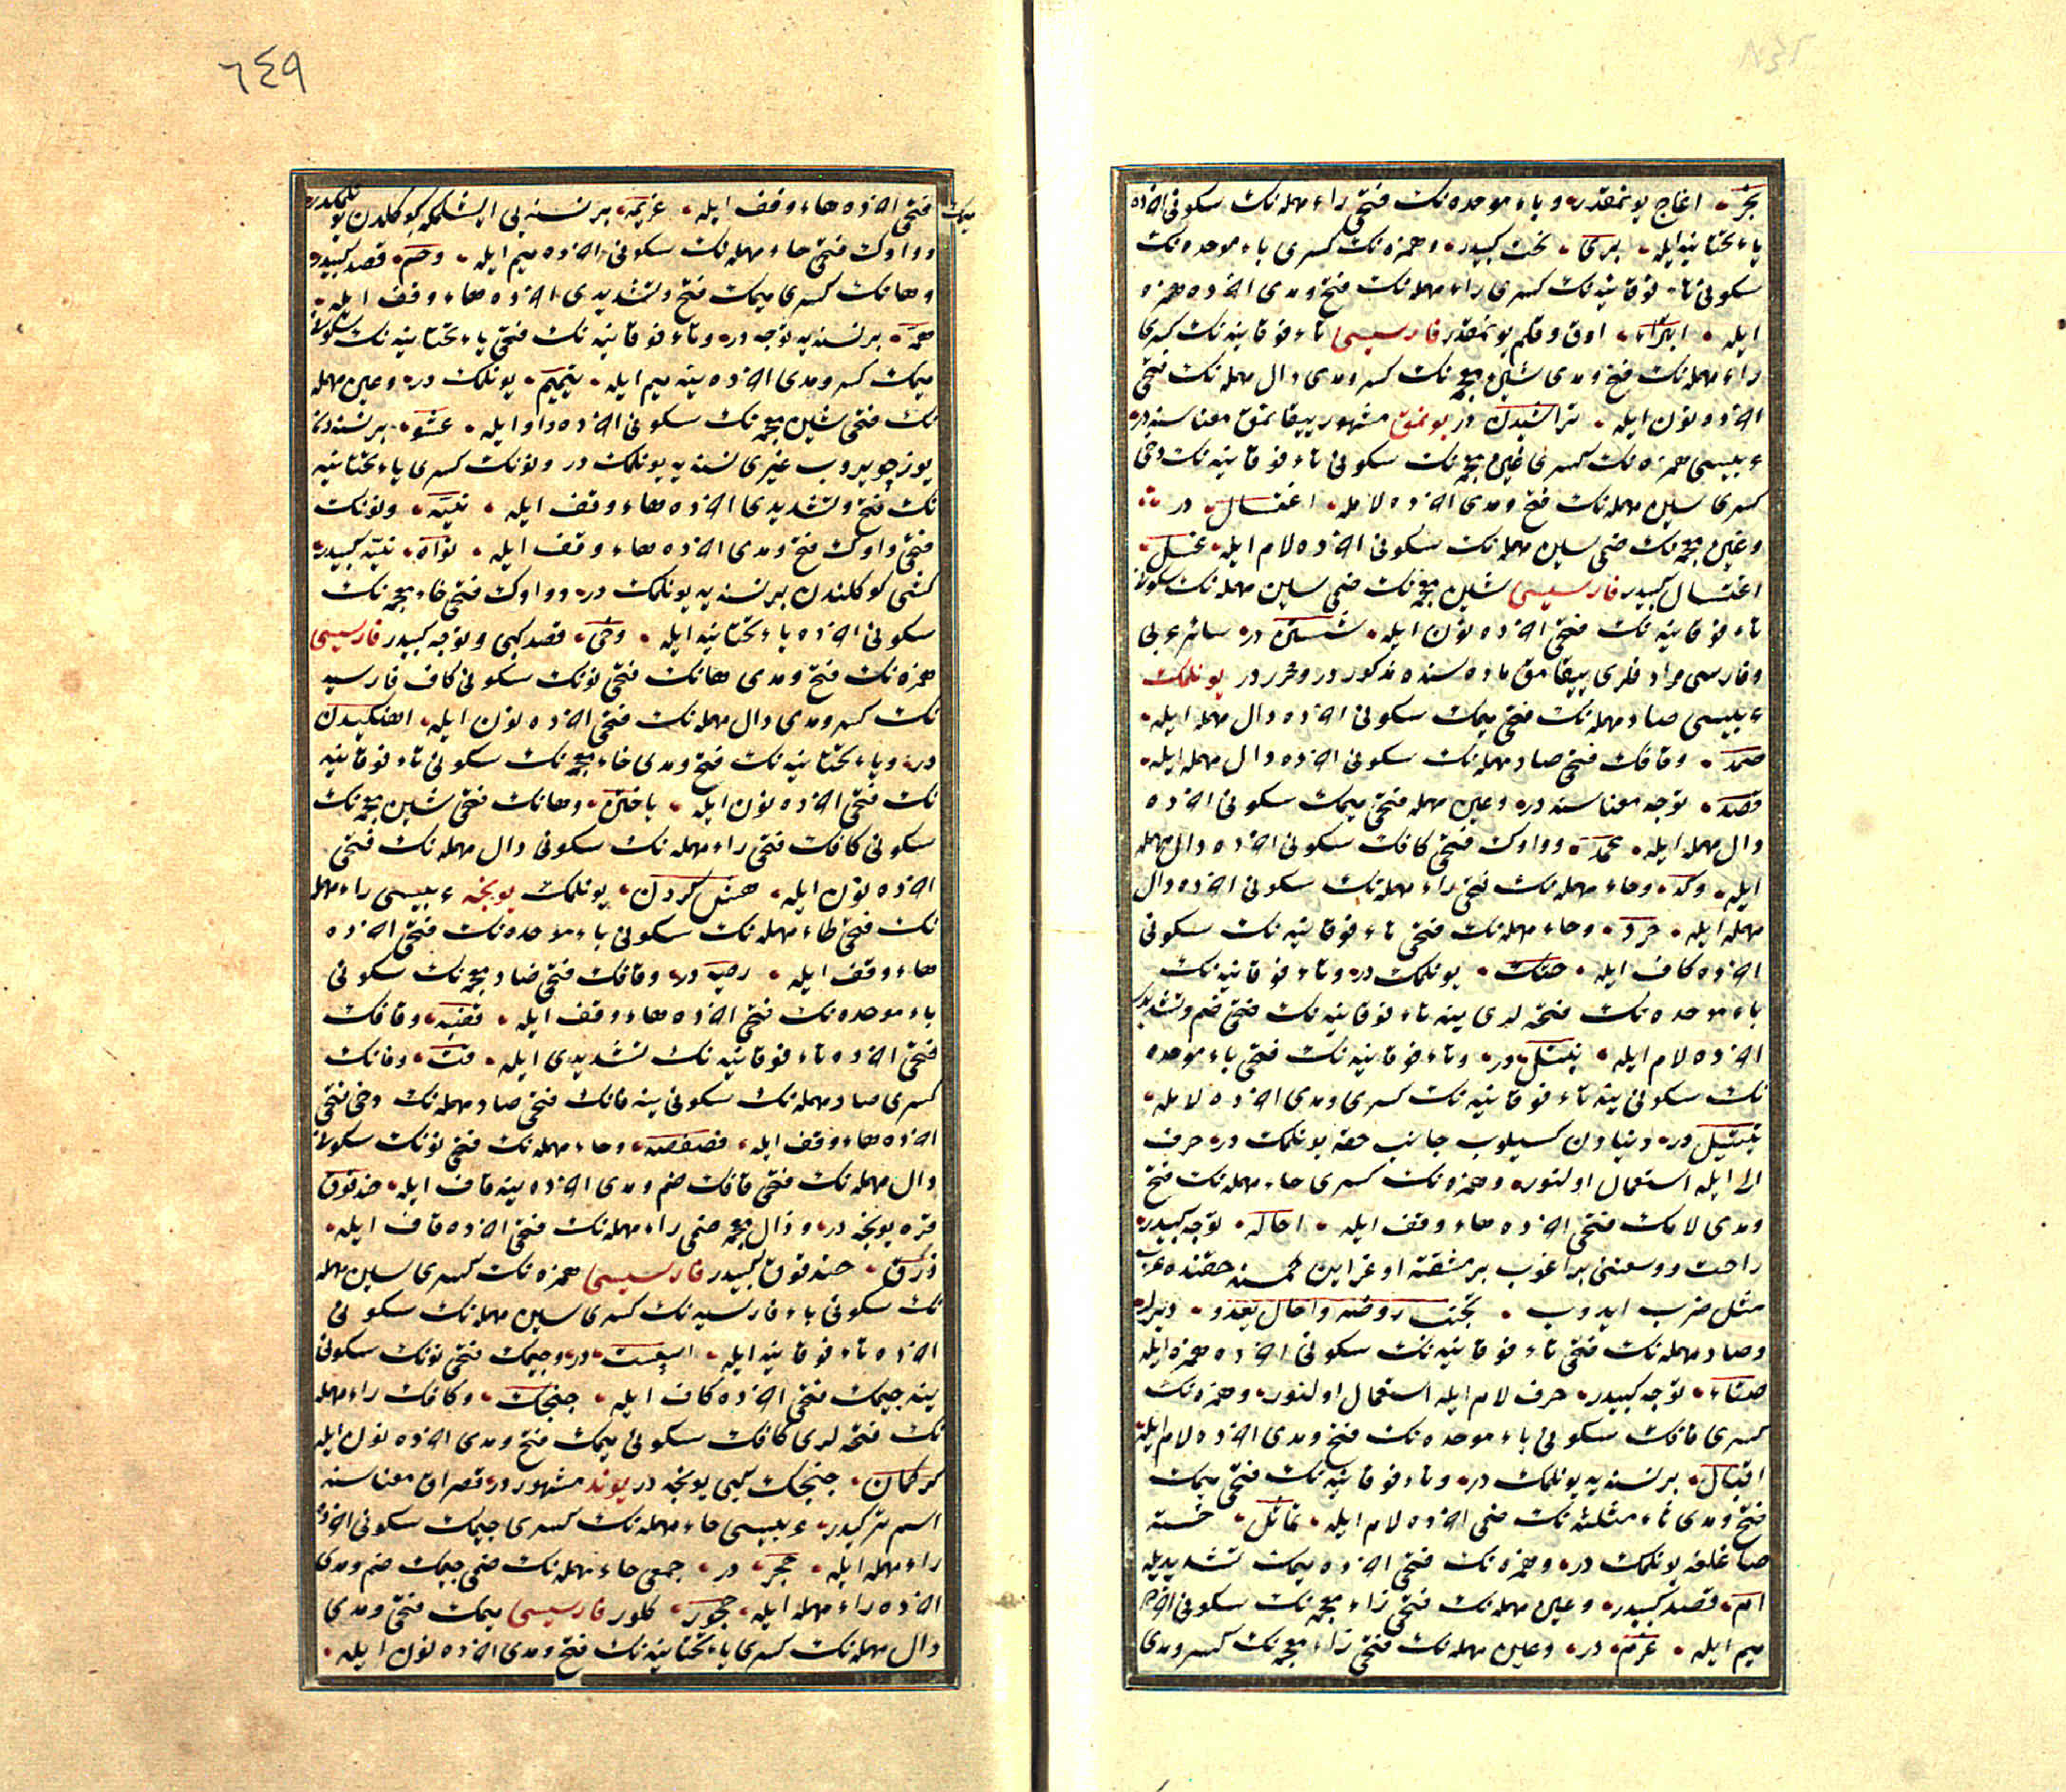 نجر اغاج یونمقدر وباء موحده‌نك فتحی راء مهمله‌نك سكونی اخرده
یاء تحتانیه ایله بری نحت كبیدر وهمزه‌نك كسری باء موحده‌نك
سكونی تاء فوقانیه‌نك كسری راء مهمله‌نك فتح ومدی اخرده همزه
ایله ابتراء اوق وقلم یونمقدر فارسیسی تاء فوقانیه‌نك كسری
راء مهمله‌نك فتح ومدی شین معجمه‌نك كسر ومدی دال مهمله‌نك فتحی
اخرده نون ایله تراشیدن در یونمق مشهور ییقانمق معناسنه در
عربیسی همزه‌نك كسری غین معجمه‌نك سكونی تاء فوقانیه‌نك دخی
كسری سین مهمله‌نك فتح ومدی اخرده لامله اغتسال در
وغین معجمه‌نك ضمی سین مهمله‌نك سكونی اخرده لام ایله غسل
اغتسال كبیدر فارسیسی شین معجمه‌نك ضمی سین مهمله‌نك سكونی
تاء فوقانیه‌نك فتحی اخرده نون ایله شستن در سائر عربی
وفارسی مرادفلری ییقامق ماده‌سنده مذكور در ومحرر در یونلمك
عربیسی صاد مهمله‌نك فتحی میمك سكونی اخرده دال مهمله ایله
صمد وقافك فتحی صاد مهمله‌نك سكونی اخرده دال مهمله ایله
قصد توجه معناسنه در وعین مهمله فتحی میمك سكونی اخرده
دال مهمله ایله عمد وواوك فتحی كافك سكونی اخرده دال مهمله
ایله وكد وحاء مهمله‌نك فتحی راء مهمله‌نك سكونی اخرده دال
مهمله ایله حرد وحاء مهمله‌نك فتحی تاء فوقانیه‌نك سكونی
اخرده كاف ایله حتك یونلمك در وتاء فوقانیه‌نك
باء موحده‌نك فتحه‌لری ینه تاء فوقانیه‌نك فتحی ضم وتشدیدی
اخرده لام ایله تبتل در وتاء فوقانیه‌نك فتحی باء موحده
نك سكونی ینه تاء فوقانیه‌نك كسری ومدی اخرده لامله
تبتیل در دنیادن كسیلوب جانب حقه یونلمك در حرف
الی ایله استعمال اولنور وهمزه‌نك كسری حاء مهمله‌نك فتح
ومدی لامك فتحی اخرده هاء وقف ایله احاله توجه كبیدر
راحت ووسعتنی براغوب بر مشقته اوغراین كمسنه حقنده عرب
مثل ضرب ایدوب تجنب روضه واحال یعدو دیرلر
وصاد مهمله‌نك فتحی تاء فوقانیه‌نك سكونی اخرده همزه ایله
صتاء توجه كبیدر حرف لام ایله استعمال اولنور وهمزه‌نك
كسری قافك سكونی باء موحده‌نك فتح ومدی اخرده لام ایله
اقبال بر نسنه‌یه یونلمك در وتاء فوقانیه‌نك فتحی میمك
فتح ومدی ثاء مثلثه‌نك ضمی اخرده لام ایله تماثل خسته
صاغلغه یونلمك در وهمزه‌نك فتحی اخرده میمك تشدیدیله
ام قصد كبیدر وعین مهمله‌نك فتحی زاء معجمه‌نك سكونی اخرده
میم ایله عزم در وعین مهمله‌نك فتحی زاء معجمه‌نك كسر ومدی
میمك
٦٤٩
فتحی اخرده هاء وقف ایله عزیمه بر نسنه‌یی ایشلمكه كوكلدن یونلمكدر
وواوك فتحی حاء مهمله‌نك سكونی اخرده میم ایله وحم قصد كبیدر
وهانك كسری میمك فتح وتشدیدی اخرده هاء وقف ایله
همه بر نسنه‌یه توجه در وتاء فوقانیه‌نك فتحی یاء تحتانیه‌نك سكونی
میمك كسر ومدی اخرده ینه میم ایله تیمیم یونلمك در وعین مهمله
نك فتحی شین معجمه‌نك سكونی اخرده واو ایله عشو بر نسنه‌دن
یوز چویروب غیری نسنه‌یه یونلمك در ونونك كسری یاء تحتانیه
نك فتح وتشدیدی اخرده هاء وقف ایله نیه ونونك
فتحی واوك فتح ومدی اخرده هاء وقف ایله نواه نیه كبیدر
كشی كوكلندن بر نسنه‌یه یونلمك در وواوك فتحی خاء معجمه‌نك
سكونی اخرده یاء تحتانیه ایله وخی قصد كبی وتوجه كبیدر فارسیسی
همزه‌نك فتح ومدی هانك فتحی نونك سكونی كاف فارسیه
نك كسر ومدی دال مهمله‌نك فتحی اخرده نون ایله اهنكیدن
در ویاء تحتانیه‌نك فتح ومدی خاء معجمه‌نك سكونی تاء فوقانیه
نك فتحی اخرده نون ایله یاختن وهانك فتحی شین معجمه‌نك
سكونی كافك فتحی راء مهمله‌نك سكونی دال مهمله‌نك فتحی
اخرده نون ایله كردن یونلمك یونجه عربیسی راء مهمله
نك فتحی طاء مهمله‌نك سكونی باء موحده‌نك فتحی اخرده
هاء وقف ایله رطبه در وقافك فتحی ضاد معجمه‌نك سكونی
باء موحده‌نك فتحی اخرده هاء وقف ایله قضبه وقافك
فتحی اخرده تاء فوقانیه‌نك تشدیدی ایله قت وفانك
كسری صاد مهمله‌نك سكونی ینه فانك فتحی صاد مهمله‌نك دخی فتحی
اخرده هاء وقف ایله فصفصه وحاء مهمله‌نك فتحی نونك سكونی
دال مهمله‌نك فتحی قافك ضم ومدی اخرده ینه قاف ایله حندقوق
قره یونجه در وذال معجمه ضمی راء مهمله‌نك فتحی اخرده قاف ایله
ذرق حندقوق كبیدر فارسیسی همزه‌نك كسری سین مهمله
نك سكونی باء فارسیه‌نك كسری سین مهمله‌نك سكونی
اخرده تاء فوقانیه ایله اسپست در وجیمك فتحی نونك سكونی
ینه جیمك فتحی اخرده كاف ایله جنجك وكافك راء مهمله
نك فتحه‌لری كافك سكونی میمك فتح ومدی اخرده نون ایله
كركمان جنجك كبی یونجه در یوند مشهور در قصراق معناسنه
اسم تركیدر عربیسی حاء مهمله‌نك كسری جیمك سكونی اخرده
راء مهمله ایله حجر در جمعی حاء مهمله‌نك ضمی جیمك ضم ومدی
اخرده راء مهمله ایله حجور كلور فارسیسی میمك فتحی ومدی
دال مهمله‌نك كسری یاء تحتانیه‌نك فتح ومدی اخرده نون ایله